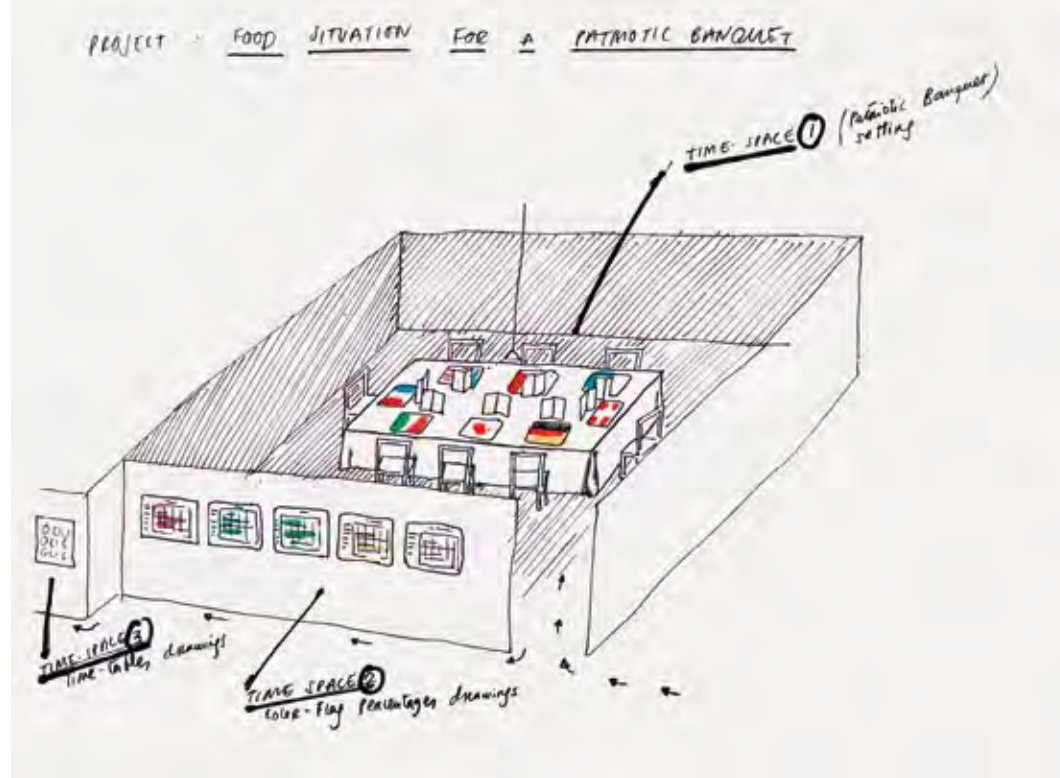 PROJECT : FOOD SITUATION FOR A PATRIOTIC BANQUET
TIME-SPACE 1 (Patriotic Banquet)
setting
TIME-SPACE 3
Time-tables drawings
TIME SPACE 2
COLOR-Flag Percentages drawings